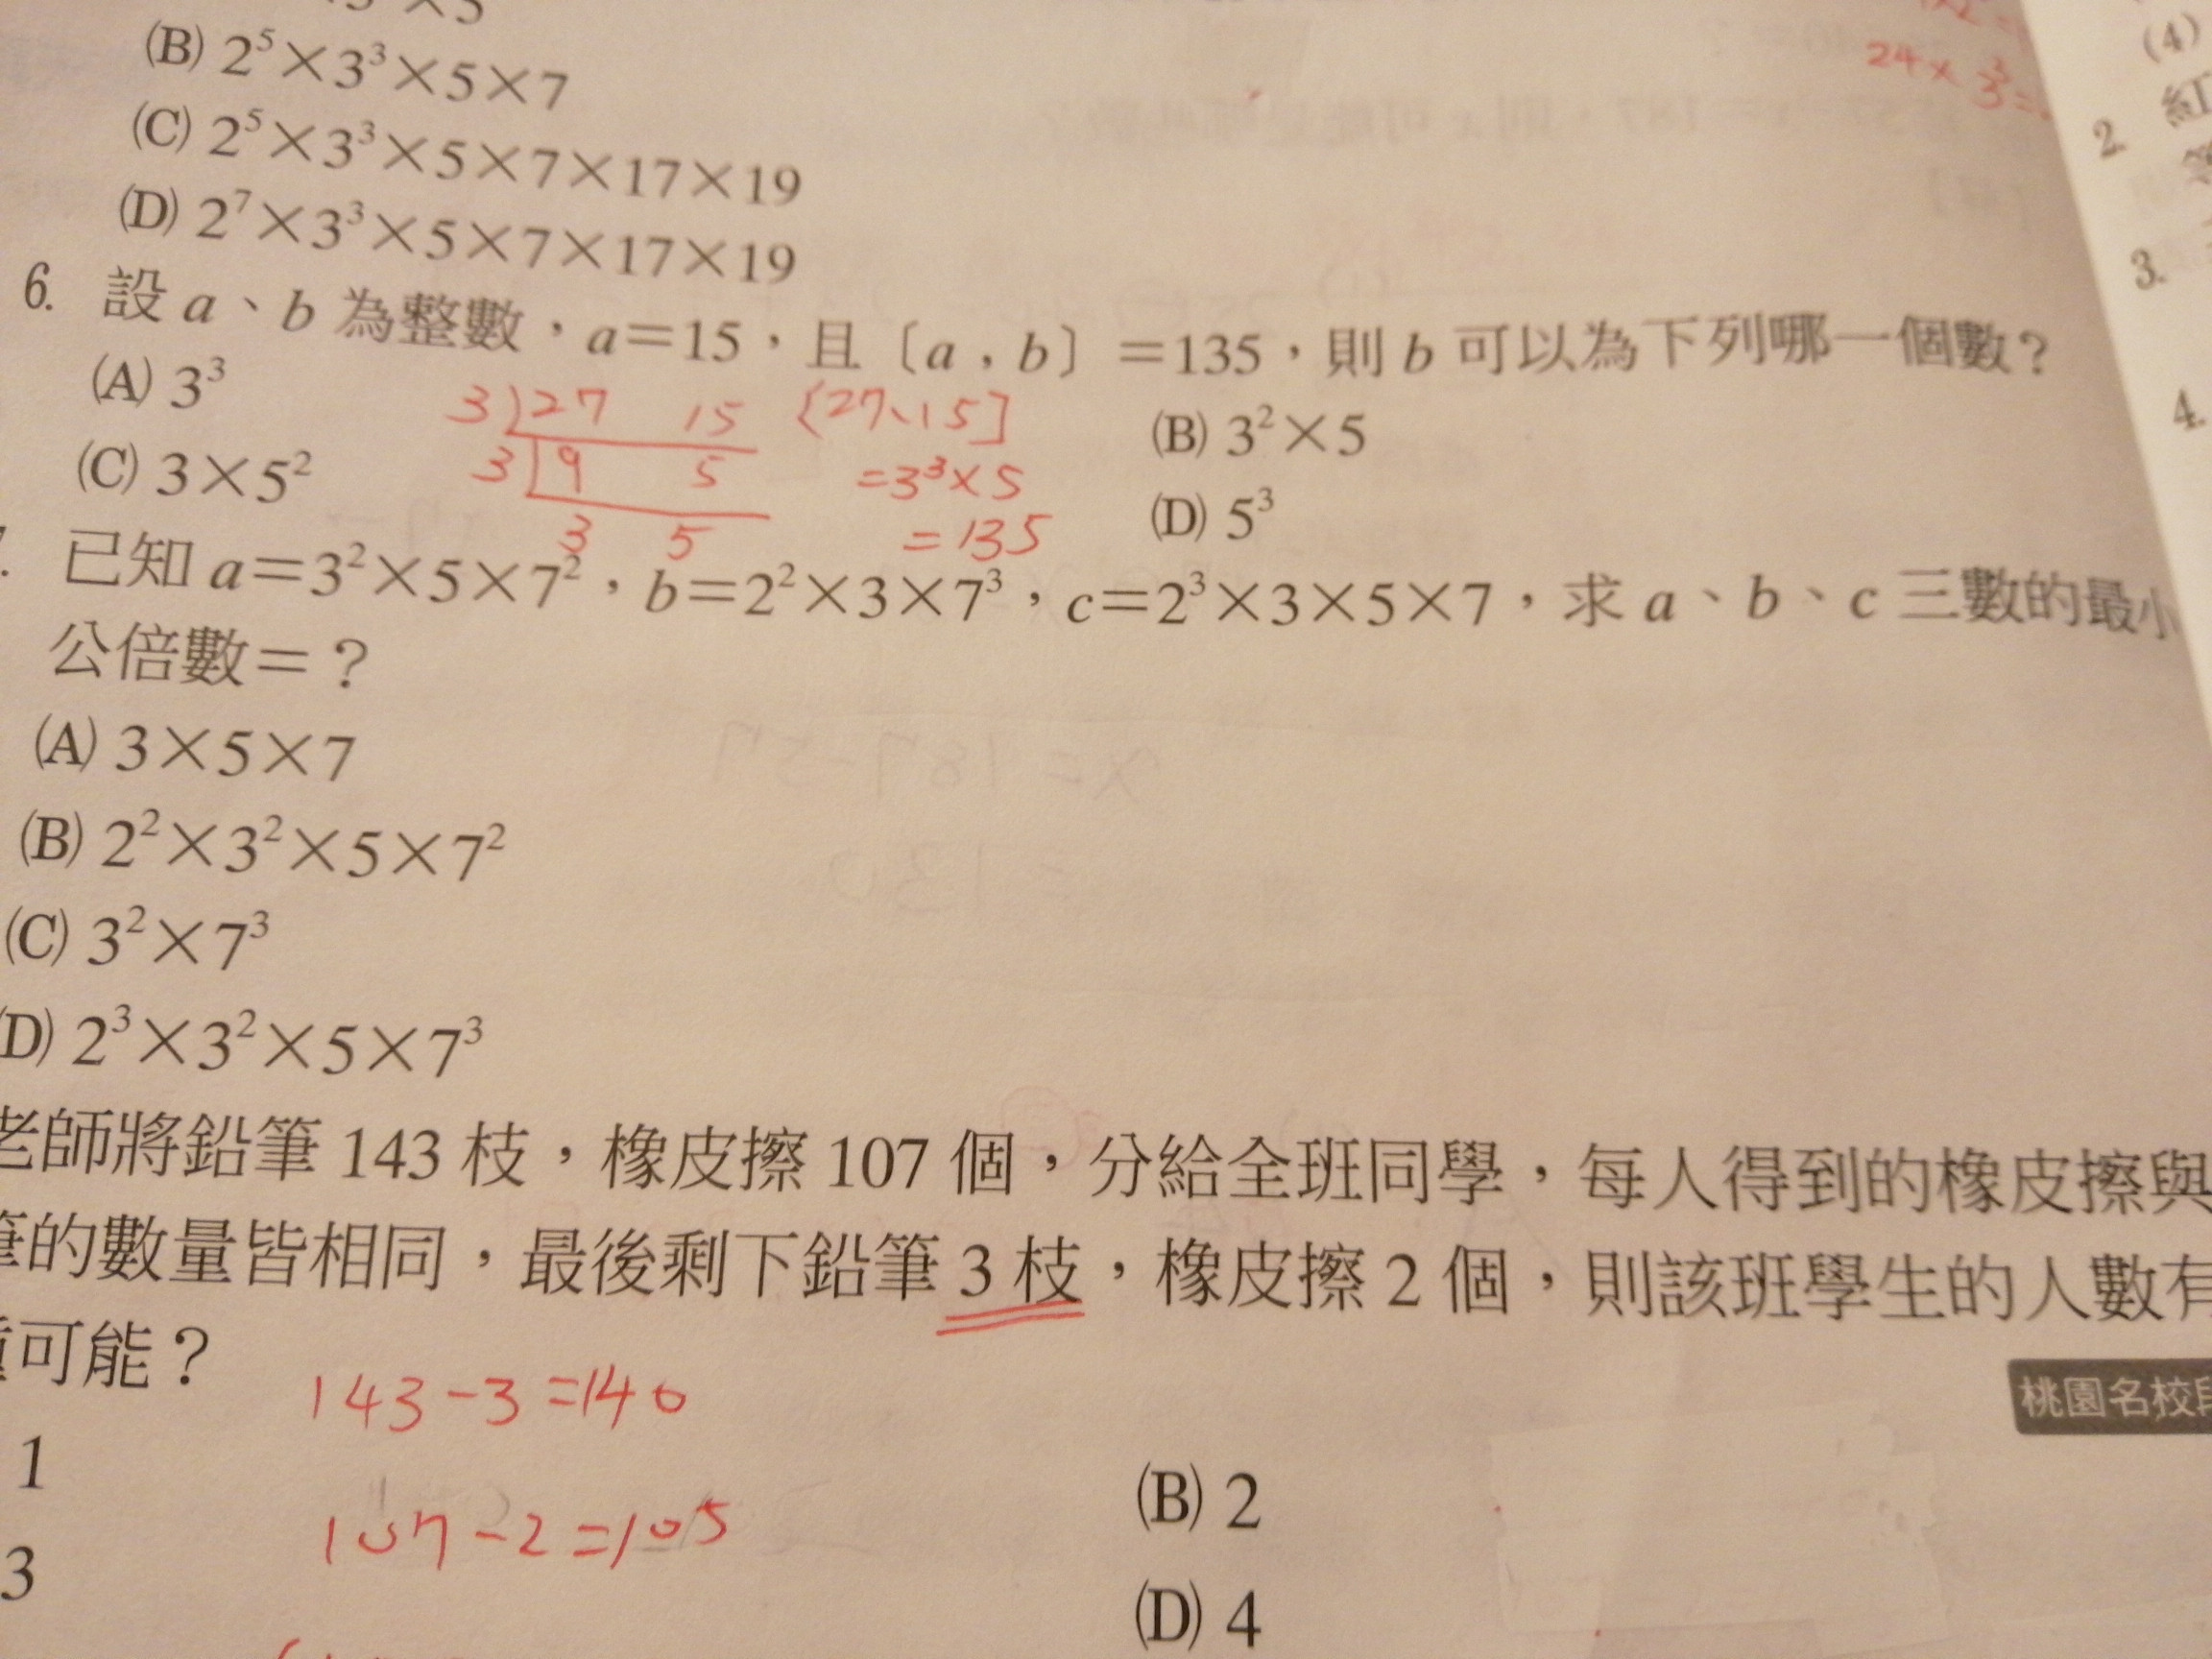 (B) 2⁵×3³×5×7
(C) 2⁵×3³×5×7×17×19
(D) 2⁷×3³×5×7×17×19
6. 設 a、b 為整數，a＝15，且〔a，b〕＝135，則 b 可以為下列哪一個數？
(A) 3³
(B) 3²×5
(C) 3×5²
(D) 5³
3)27 15
3|9 5
3 5
[27、15]
=3³×5
=135
已知 a＝3²×5×7²，b＝2²×3×7³，c＝2³×3×5×7，求 a、b、c 三數的最小
公倍數＝？
(A) 3×5×7
(B) 2²×3²×5×7²
(C) 3²×7³
(D) 2³×3²×5×7³
老師將鉛筆 143 枝，橡皮擦 107 個，分給全班同學，每人得到的橡皮擦與
筆的數量皆相同，最後剩下鉛筆 3 枝，橡皮擦 2 個，則該班學生的人數有
可能？
143-3=140
107-2=105
1
(B) 2
3
(D) 4
桃園名校段
24×3³=
(4)
2. 紅
3.
4.